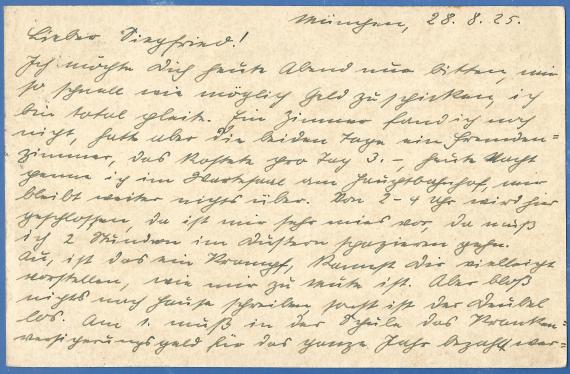 München, 28.8.25.
Lieber Siegfried!
Ich möchte Dich heute Abend nur bitten, mir
so schnell wie möglich Geld zu schicken, ich
bin total pleite. Ein Zimmer fand ich noch
nicht, hatte aber die beiden Tage ein Fremden=
zimmer, das kostete pro Tag 3.–, heute Nacht
penne ich im Wartesaal am Hauptbahnhof, mir
bleibt weiter nichts über. Von 2-4 Uhr wird hier
geschlossen, da ist mir sehr mies vor, da muß
ich 2 Stunden im Düstern spazieren gehn.
Au, ist das ein Krampf, kannst Dir vielleicht
vorstellen, wie mir zu mute ist. Aber bloß
nichts nach Hause schreiben sonst ist der Deubel
los. Am 1. muß in der Schule das Kranken=
versicherungsgeld für das ganze Jahr bezahlt wer=